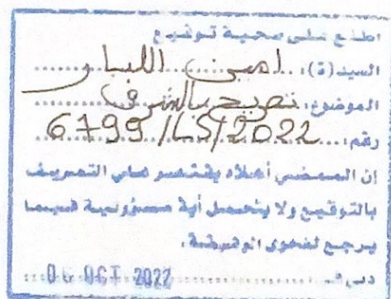 اطلع على صحة توقيع
السيد(ة): امين اللبار
الموضوع: تصريح بالشرف
رقم: 6799/LS/2022
إن الممضي أعلاه يقتصر على التعريف
بالتوقيع ولا يتحمل أية مسؤولية فيما
يرجع لفحوى الوثيقة.
OCT 2022